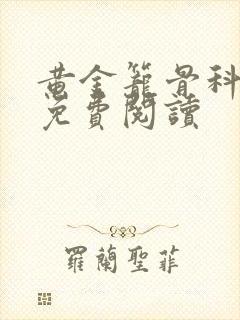 黃金籠骨科
免費閱讀
羅蘭聖菲